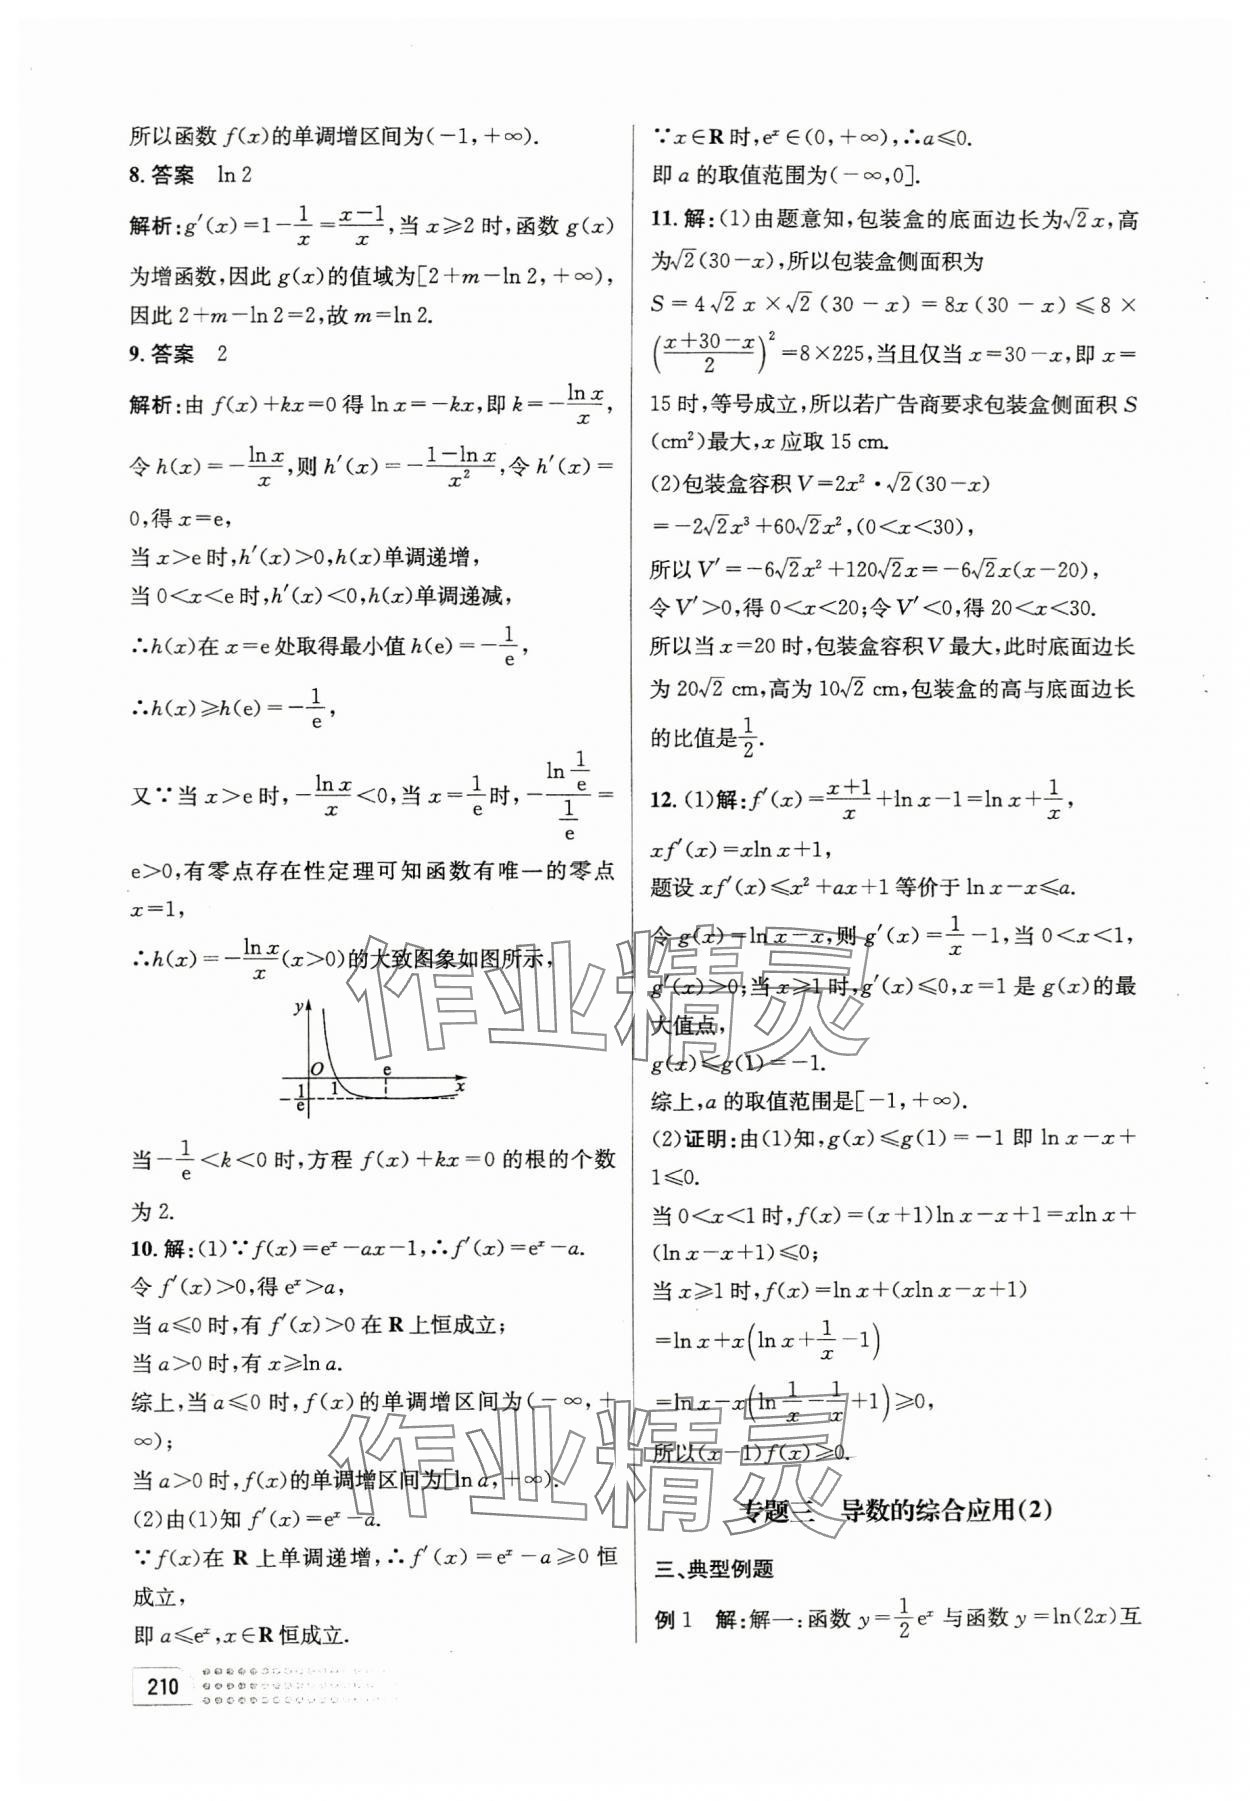 所以函数 f(x)的单调增区间为(-1,+∞).
8.答案 ln 2
解析:g′(x)=1-1/x=(x-1)/x,当 x≥2 时,函数 g(x)
为增函数,因此 g(x)的值域为[2+m-ln 2,+∞),
因此 2+m-ln 2=2,故 m=ln 2.
9.答案 2
解析:由 f(x)+kx=0 得 ln x=-kx,即 k=-ln x/x,
令 h(x)=-ln x/x,则 h′(x)=-(1-ln x)/x²,令 h′(x)=
0,得 x=e,
当 x>e 时,h′(x)>0,h(x)单调递增,
当 0<x<e 时,h′(x)<0,h(x)单调递减,
∴h(x)在 x=e 处取得最小值 h(e)=-1/e,
∴h(x)≥h(e)=-1/e,
又∵当 x>e 时,-ln x/x<0,当 x=1/e时,-(ln 1/e)/(1/e)=
e>0,有零点存在性定理可知函数有唯一的零点
x=1,
∴h(x)=-ln x/x(x>0)的大致图象如图所示,
y
O 1 e x
-1/e
当-1/e<k<0 时,方程 f(x)+kx=0 的根的个数
为 2.
10.解:(1)∵f(x)=eˣ-ax-1,∴f′(x)=eˣ-a.
令 f′(x)>0,得 eˣ>a,
当 a≤0 时,有 f′(x)>0 在 R 上恒成立;
当 a>0 时,有 x≥ln a.
综上,当 a≤0 时,f(x)的单调增区间为(-∞,+
∞);
当 a>0 时,f(x)的单调增区间为[ln a,+∞).
(2)由(1)知 f′(x)=eˣ-a.
∵f(x)在 R 上单调递增,∴f′(x)=eˣ-a≥0 恒
成立,
即 a≤eˣ,x∈R恒成立.
210
∵x∈R 时,eˣ∈(0,+∞),∴a≤0.
即 a 的取值范围为(-∞,0].
11.解:(1)由题意知,包装盒的底面边长为√2x,高
为√2(30-x),所以包装盒侧面积为
S=4√2x×√2(30-x)=8x(30-x)≤8×
((x+30-x)/2)²=8×225,当且仅当 x=30-x,即 x=
15 时,等号成立,所以若广告商要求包装盒侧面积 S
(cm²)最大,x 应取 15 cm.
(2)包装盒容积 V=2x²·√2(30-x)
=-2√2x³+60√2x²,(0<x<30),
所以 V′=-6√2x²+120√2x=-6√2x(x-20),
令 V′>0,得 0<x<20;令 V′<0,得 20<x<30.
所以当 x=20 时,包装盒容积 V 最大,此时底面边长
为 20√2 cm,高为 10√2 cm,包装盒的高与底面边长
的比值是1/2.
12.(1)解:f′(x)=(x+1)/x+ln x-1=ln x+1/x,
xf′(x)=xln x+1,
题设 xf′(x)≤x²+ax+1 等价于 ln x-x≤a.
令 g(x)=ln x-x,则 g′(x)=1/x-1,当 0<x<1,
g′(x)>0;当 x≥1 时,g′(x)≤0,x=1 是 g(x)的最
大值点,
g(x)≤g(1)=-1.
综上,a 的取值范围是[-1,+∞).
(2)证明:由(1)知,g(x)≤g(1)=-1 即 ln x-x+
1≤0.
当 0<x<1 时,f(x)=(x+1)ln x-x+1=xln x+
(ln x-x+1)≤0;
当 x≥1 时,f(x)=ln x+(xln x-x+1)
=ln x+x(ln x+1/x-1)
=ln x-x(ln 1/x-1/x+1)≥0,
所以(x-1)f(x)≥0.
专题三 导数的综合应用(2)
三、典型例题
例 1 解:解一:函数 y=1/2eˣ 与函数 y=ln(2x)互
作业精灵
作业精灵